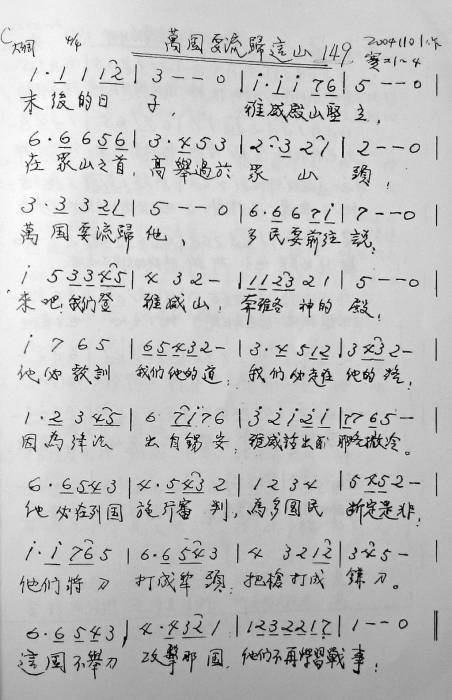 C大調 4/4 萬國要流歸這山 149. 2004.11.01作
賽2:1~4
1·1 1 12 | 3 - - 0 | i·i i 76 | 5 - - 0 |
末後的日 子, 雅威殿山堅立,
6·6 6 56 | 3·4 5 3 | 2·3 2 1 | 2 - - 0 |
在眾山之首, 高舉過於 眾 山 頭,
3·3 3 21 | 5 - - 0 | 6·6 6 7i | 7 - - 0 |
萬國要流歸他, 多民要前往說,
i 5 3345 | 4 3 2 - | 1123 2 1 | 5 - - 0 |
來吧!我們登 雅威山, 奔雅各 神的 殿,
i 7 6 5 | 65432 - | 3·4 512 | 3432 - |
他必教訓 我們他的道, 我們必走在 他的路,
1·2 3 45 | 6 7i76 | 3 2i2i | 7765 - |
因為律法 出自錫安, 雅威話出於 耶路撒冷。
6·6543 | 4·5432 | 1 2 3 4 | 5452 - |
他必在列國 施行審判, 為多國民 斷定是非,
i·i 765 | 6·6543 | 4 3212 | 345 - |
他們將刀 打成犁頭, 把槍打成 鐮刀。
6·6543 | 4·4321 | 1232217 | 1 - - 0 ‖
這國不舉刀 攻擊那國, 他們不再學習戰 事,